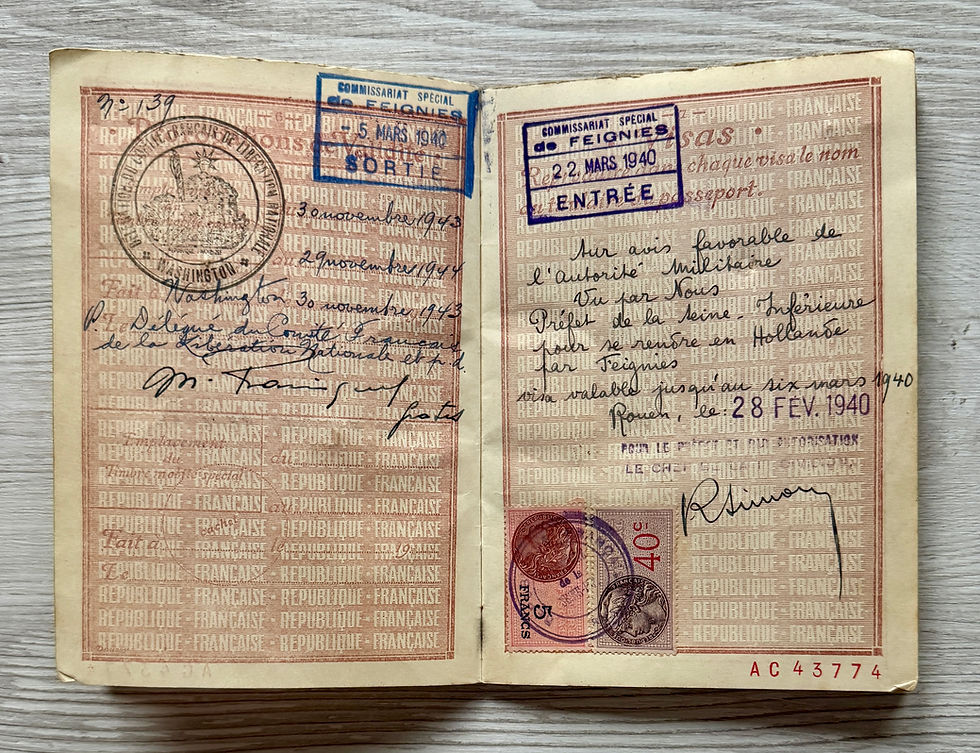 No 139
COMMISSARIAT SPÉCIAL
de FEIGNIES
- 5 MARS 1940
SORTIE
COMITÉ FRANÇAIS DE LIBÉRATION NATIONALE
WASHINGTON
30 novembre 1943
29 novembre 1944
Fait à Washington 30 novembre 1943
P. Le Délégué du Comité Français
de la Libération Nationale et p.d.
Gratis
Emplacement
du
Timbre mobile spécial
du
au
cachet
Fait à le 19
Le
RÉPUBLIQUE - FRANÇAISE
COMMISSARIAT SPÉCIAL
de FEIGNIES
22 MARS 1940
ENTRÉE
Visas
chaque visa le nom
passeport.
Sur avis favorable de
l'Autorité Militaire
Vu par Nous
Préfet de la Seine-Inférieure
pour se rendre en Hollande
par Feignies
visa valable jusqu'au six mars 1940
Rouen, le: 28 FEV. 1940
POUR LE PRÉFET ET PAR AUTORISATION
LE CHEF
RSimon
5
FRANCS
40c
AC 43774